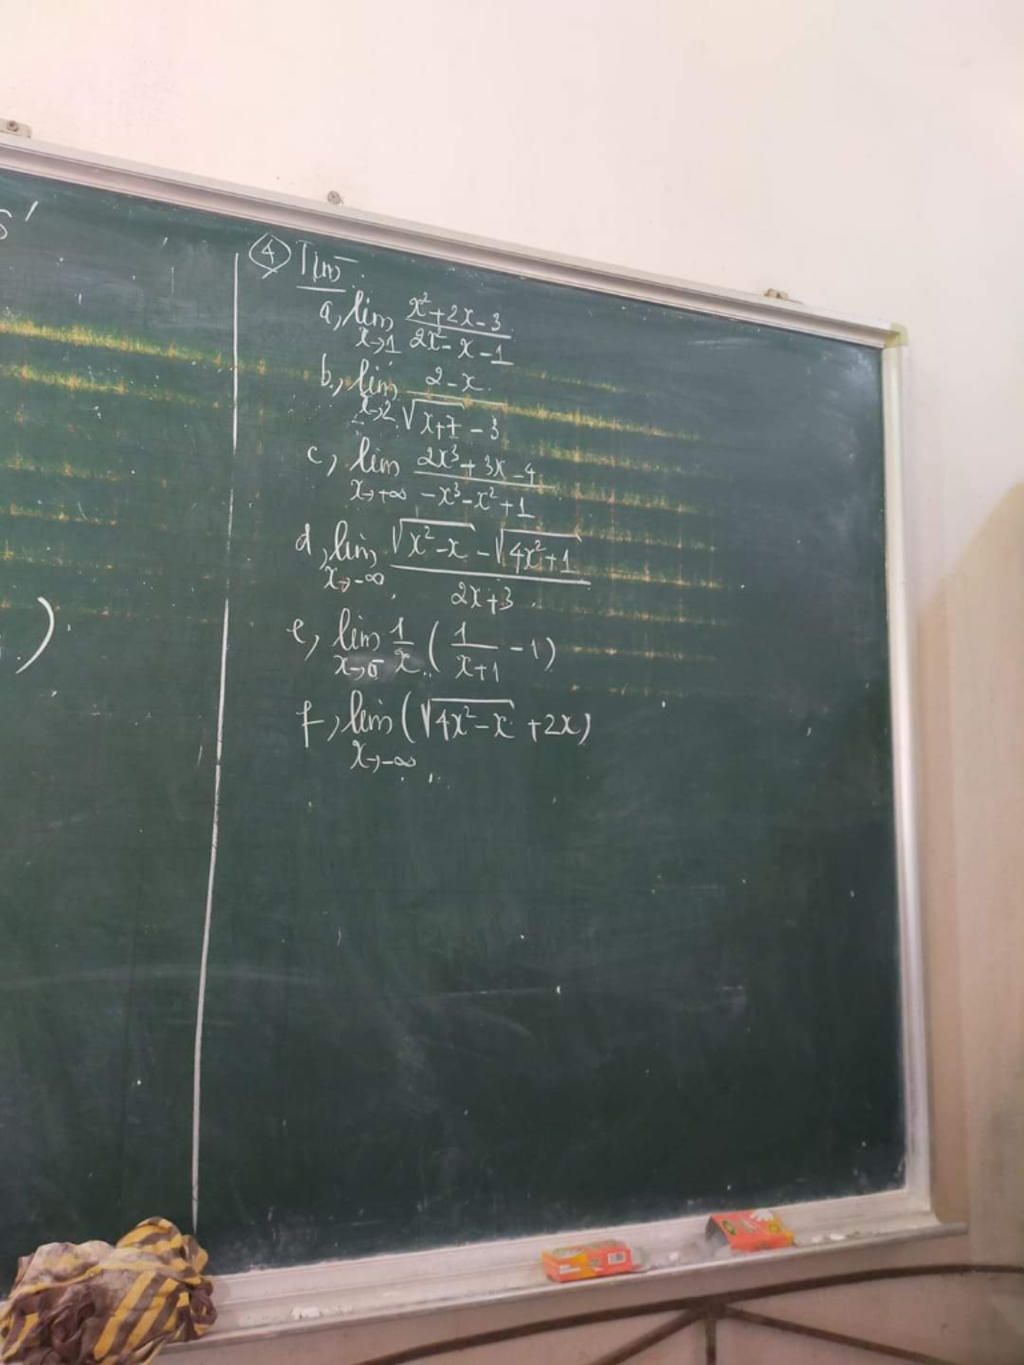 ④ Tìm
a, lim x→1 (x²+2x-3)/(2x²-x-1)
b, lim x→2 (2-x)/(√(x+7) - 3)
c, lim x→+∞ (2x³+3x-4)/(-x³-x²+1)
d, lim x→-∞ (√(x²-x) - √(4x²+1))/(2x+3)
e, lim x→0⁻ 1/x (1/(x+1) - 1)
f, lim x→-∞ (√(4x²-x) + 2x)